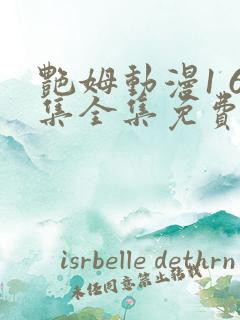 艷姆動漫1 6
集全集免費
isrbelle dethrn
未经同意禁止转载